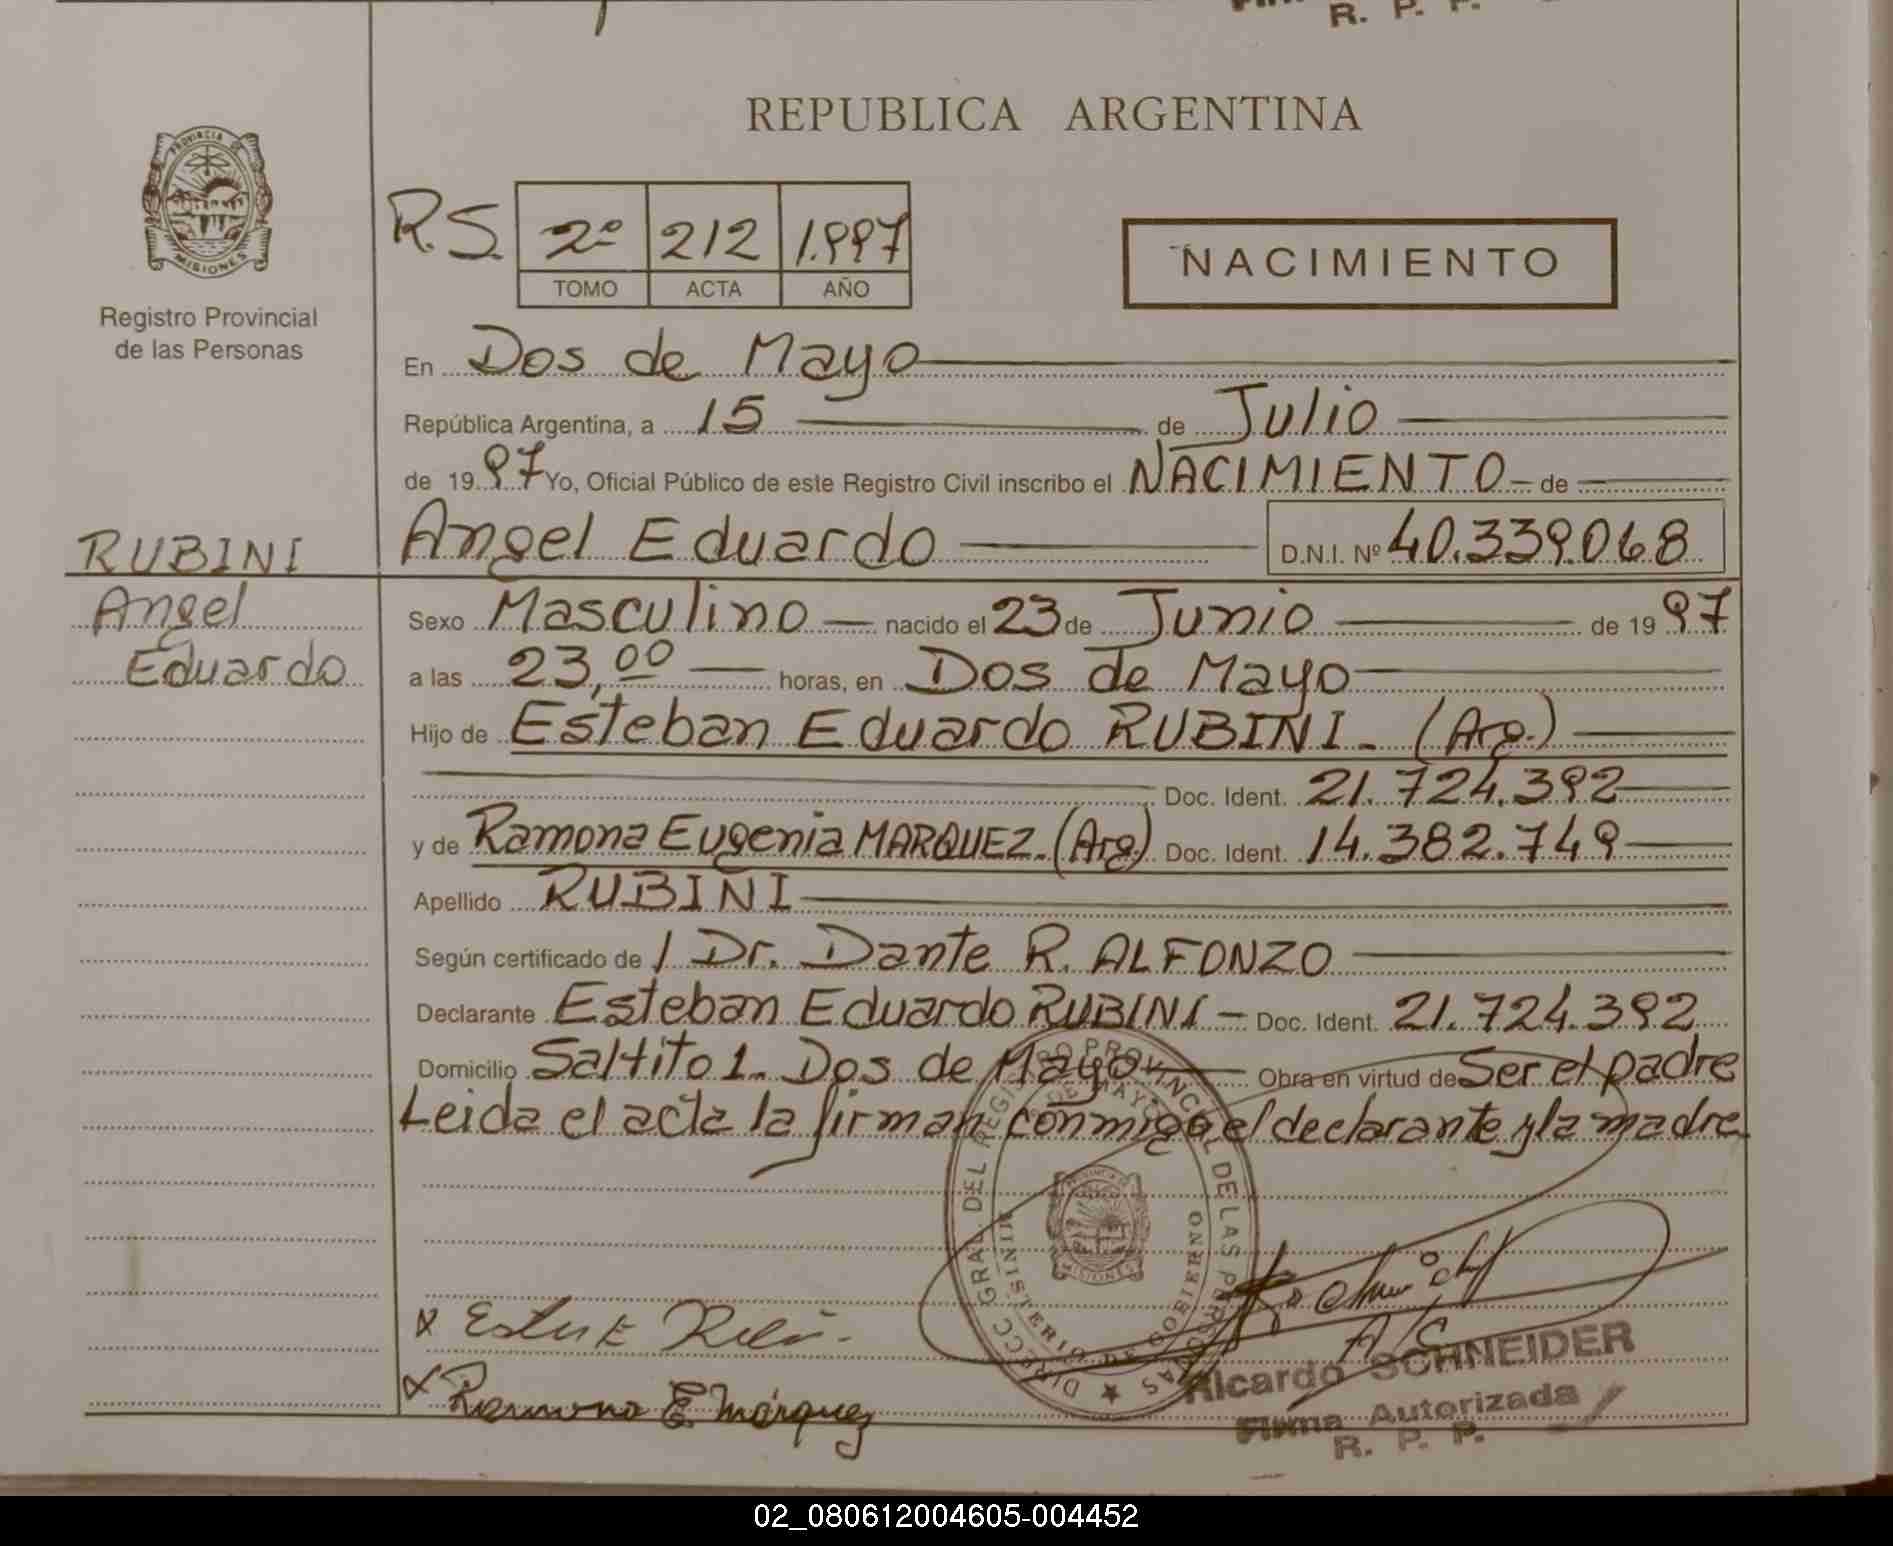 R. P. P.
REPUBLICA ARGENTINA
PROVINCIA DE
MISIONES
Registro Provincial
de las Personas
R.S. 2º 212 1.997
TOMO ACTA AÑO
NACIMIENTO
En Dos de Mayo
República Argentina, a 15 de Julio
de 1997 Yo, Oficial Público de este Registro Civil inscribo el NACIMIENTO de
RUBINI
Angel
Eduardo
Angel Eduardo D.N.I. Nº 40.339.068
Sexo Masculino nacido el 23 de Junio de 1997
a las 23,00 horas, en Dos de Mayo
Hijo de Esteban Eduardo RUBINI. (Arg.)
Doc. Ident. 21.724.392
y de Ramona Eugenia MARQUEZ. (Arg.) Doc. Ident. 14.382.749
Apellido RUBINI
Según certificado de / Dr. Dante R. ALFONZO
Declarante Esteban Eduardo RUBINI Doc. Ident. 21.724.392
Domicilio Saltito 1. Dos de Mayo Obra en virtud de Ser el padre
Leida el acta la firman conmigo el declarante y la madre
DIRECC GRAL DEL REGISTRO PROVINCIAL DE LAS PERSONAS
DOS DE MAYO
MINISTERIO DE GOBIERNO
MISIONES
Ramona E. Márquez
Ricardo SCHNEIDER
Firma Autorizada
R. P. P.
02_080612004605-004452